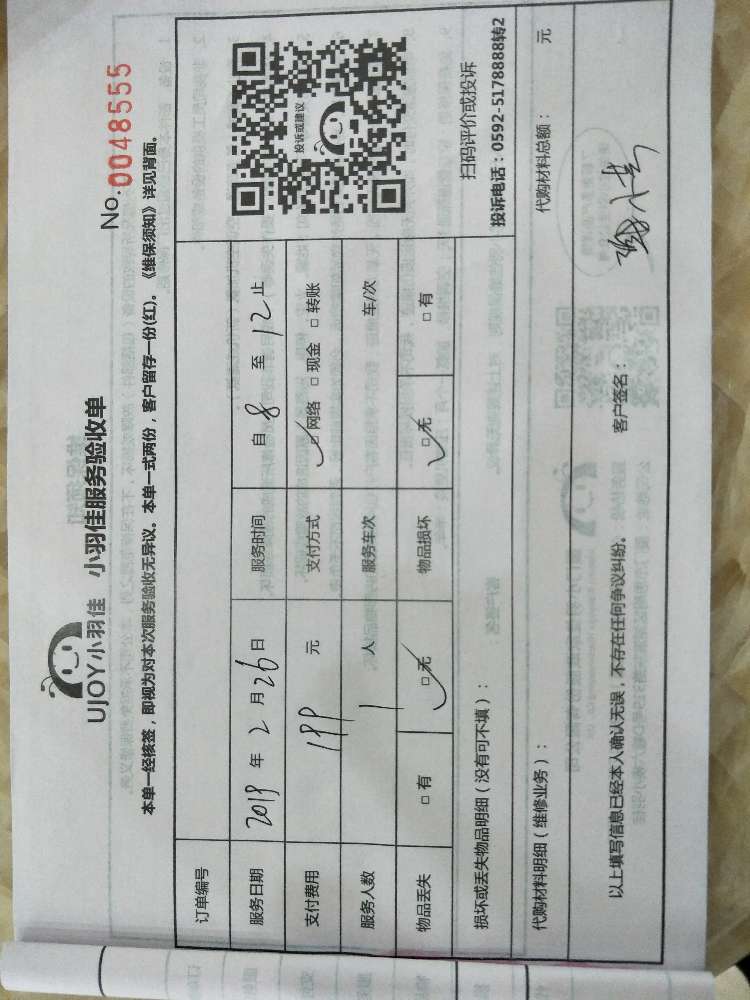 UJOY小羽佳 小羽佳服务验收单
No. 0048555
本单一经核签，即视为对本次服务验收无异议。本单一式两份，客户留存一份(红)。《维保须知》详见背面。
订单编号
服务日期 2019 年 2 月 26 日 服务时间 自 8 至 12 止
支付费用 199 元 支付方式 ✓□网络 □现金 □转账
服务人数 1 人 服务车次 车/次
物品丢失 □有 ✓□无 物品损坏 ✓□无 □有
投诉或建议
扫码评价或投诉
投诉电话：0592-5178888转2
损坏或丢失物品明细（没有可不填）：
代购材料明细（维修业务）： 代购材料总额： 元
以上填写信息已经本人确认无误，不存在任何争议纠纷。 客户签名：